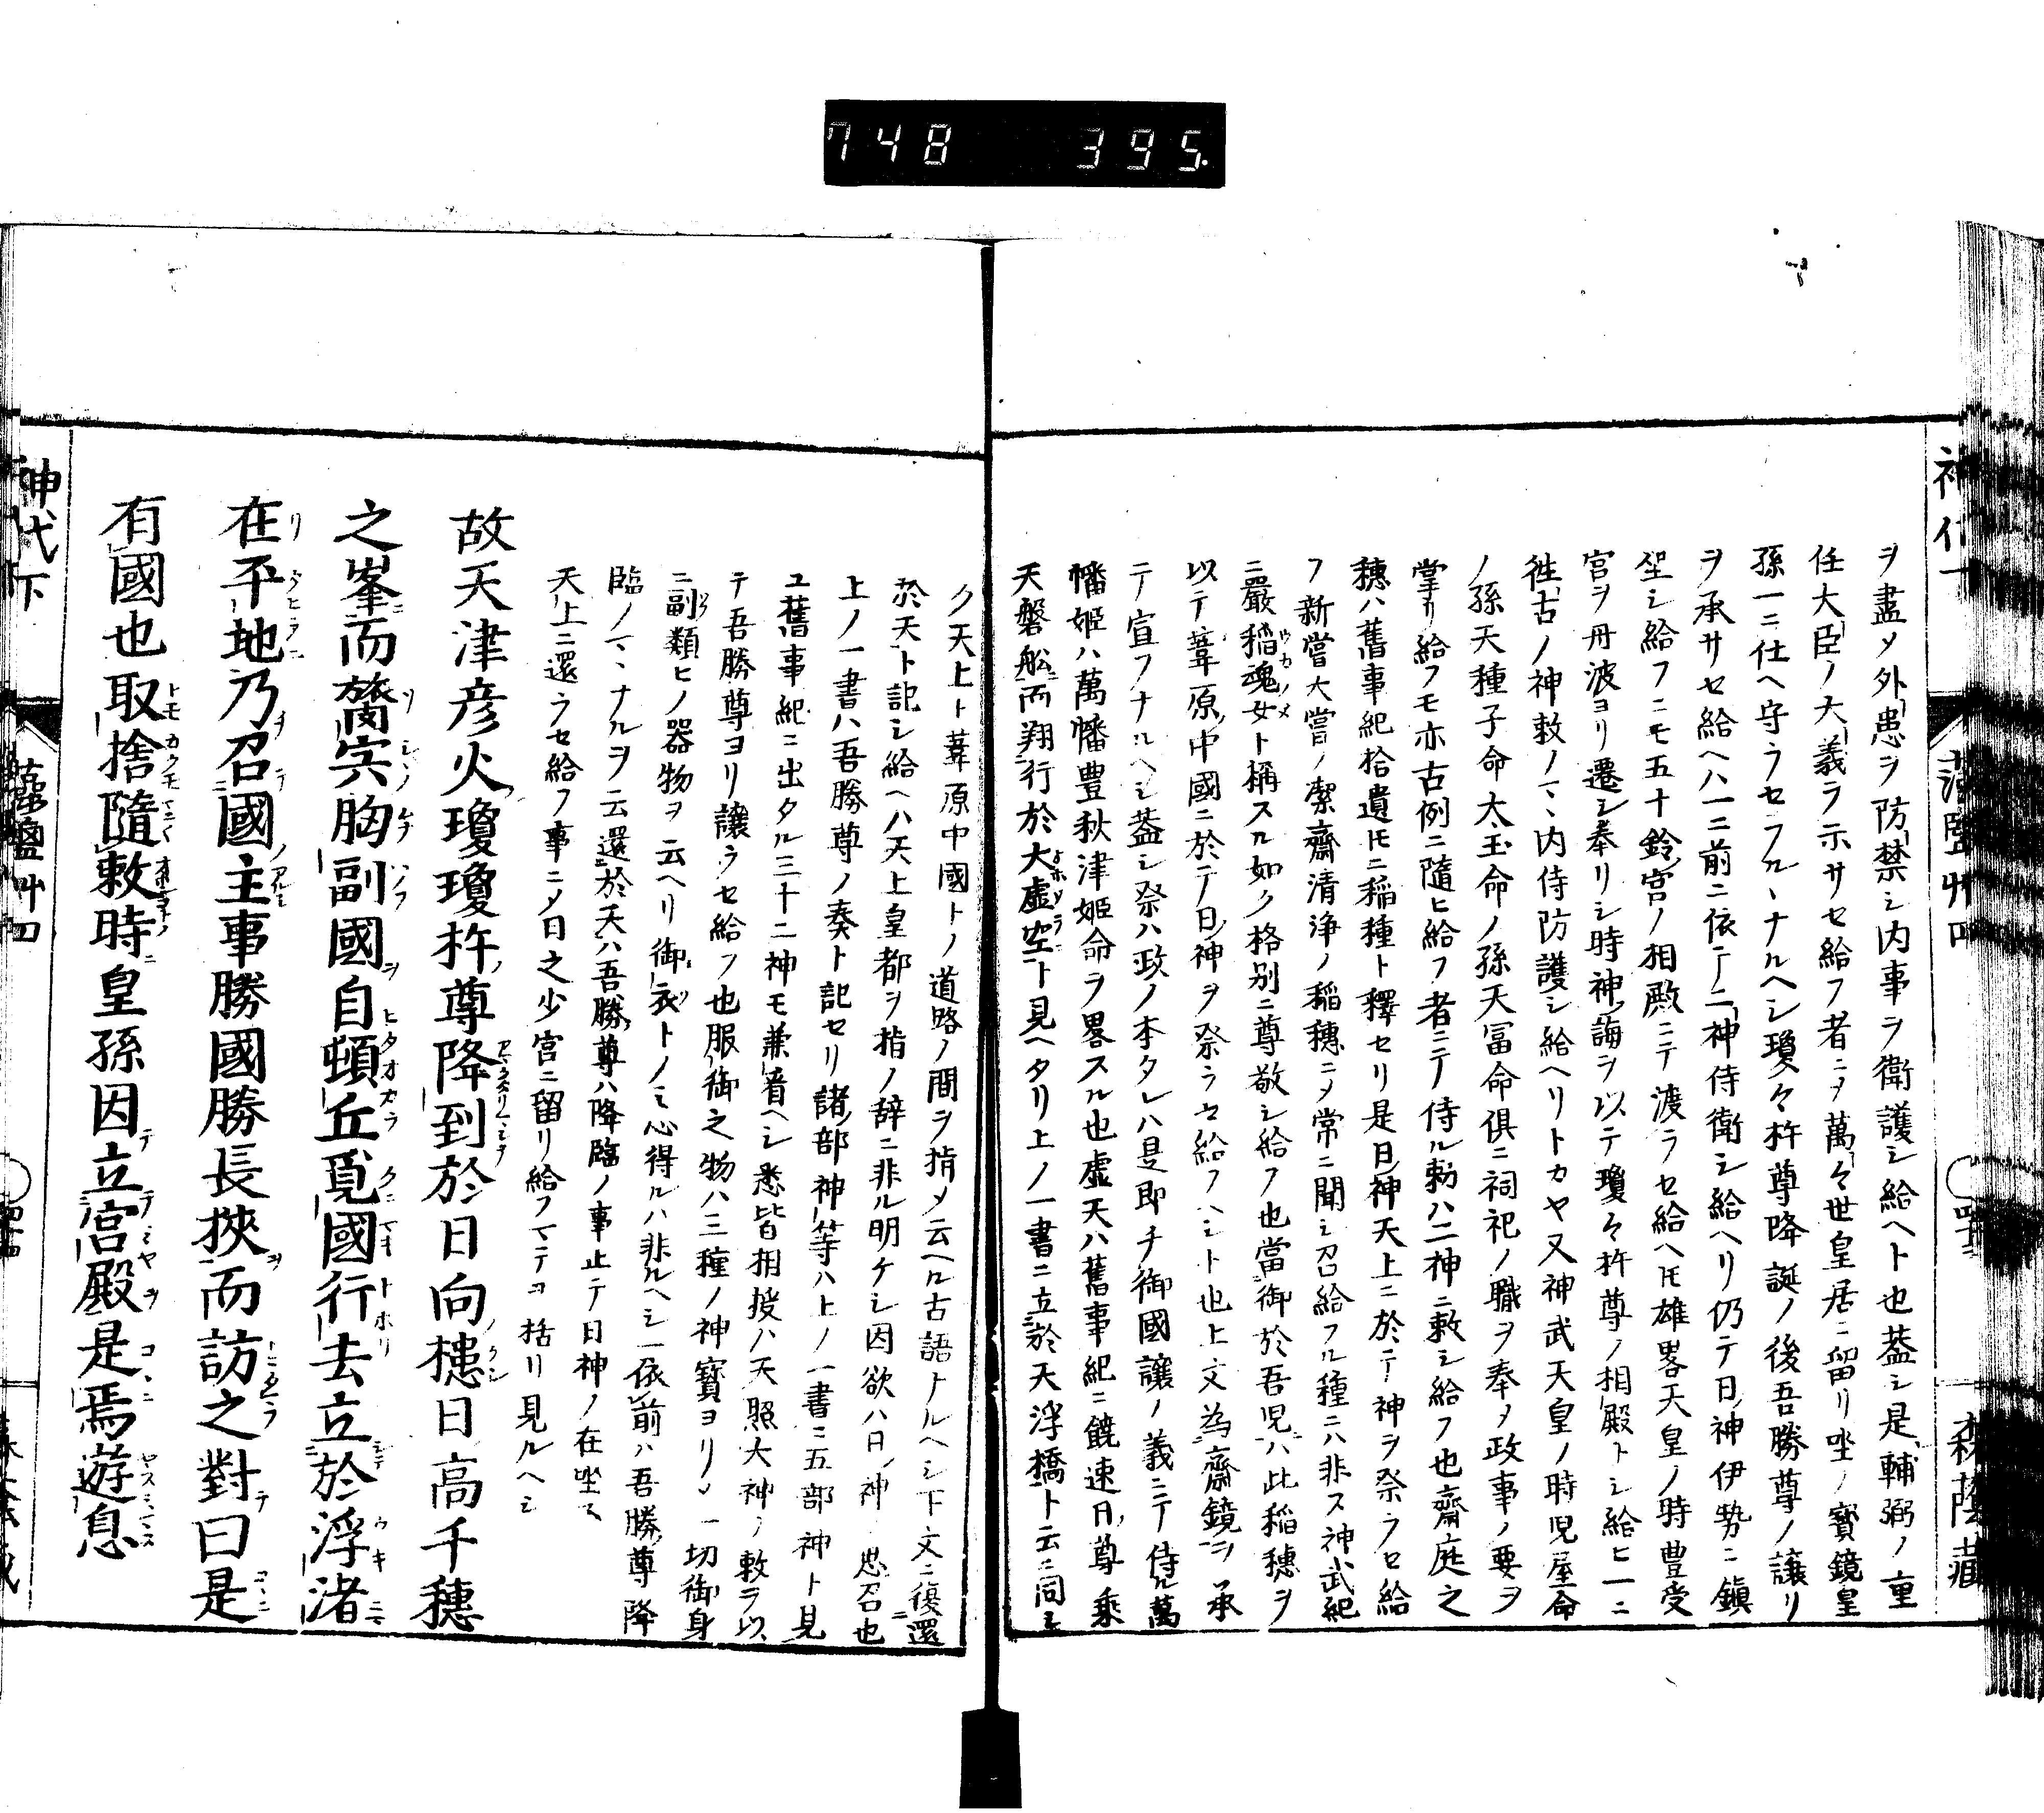 748 395.
ヲ盡メ外患ヲ防禁シ内事ヲ衛護シ給ヘト也葢シ是輔弼ノ重
任大臣ノ大義ヲ示サセ給フ者ニヲ萬々世皇居ニ留リ坐ノ寳鏡皇
孫一ニ仕ヘ守ラセフルヽナルヘシ瓊々杵尊降誕ノ後吾勝尊ノ讓リ
ヲ承サセ給ヘハ一ニ前ニ依テ二神侍衛シ給ヘリ仍テ日神伊勢ニ鎭
坐シ給フニモ五十鈴宮ノ相殿ニテ渡ラセ給ヘ𪜈雄畧天皇ノ時豊受
宮ヲ丹波ヨリ遷シ奉リシ時神誨ヲ以テ瓊々杵尊ノ相殿トシ給ヒ一ニ
徃古ノ神敕ノマヽ内侍防護シ給ヘリトカヤ又神武天皇ノ時児屋命
ノ孫天種子命太玉命ノ孫天冨命俱ニ祠祀ノ職ヲ奉メ政事ノ要ヲ
掌リ給フモ亦古例ニ隨ヒ給フ者ニテ侍ル勅ハ二神ニ敕シ給フ也齋庭之
穗ハ舊事紀拾遺𪜈ニ稲種ト釋セリ是日神天上ニ於テ神ヲ祭ラセ給
フ新嘗大嘗ノ潔齋清浄ノ稲穗ニメ常ニ聞シ召給フル種ニハ非ス神武紀
ニ嚴稲魂女ト稱スル如ク格別ニ尊敬シ給フ也當御於吾児ハ此稲穗ヲ
以テ葦原中國ニ於テ日神ヲ祭ラセ給フヘシト也上文為齋鏡ヲ承
ニテ宣フナルヘシ葢シ祭ハ政ノ本タレハ是即チ御國讓ノ義ニテ侍ル萬
幡姫ハ萬幡豊秋津姫命ヲ畧スル也虚天ハ舊事紀ニ饒速日尊乗
天磐舩而翔行於大虚空ト見ヘタリ上ノ一書ニ立於天浮橋ト云ニ同シ
ク天上ト葦原中國トノ道路ノ間ヲ指メ云ヘル古語ナルヘシ下文ニ復還
於天ト記シ給ヘハ天上皇都ヲ指ノ辞ニ非ル明ケシ因欲ハ日神ノ思召也
上ノ一書ハ吾勝尊ノ奏ト記セリ諸部神等ハ上ノ一書ニ五部神ト見
ユ舊事紀ニ出タル三十二神モ兼看ヘシ悉皆相授ハ天照大神ノ敕ヲ以
テ吾勝尊ヨリ讓ラセ給フ也服御之物ハ三種ノ神寳ヨリ一切御身
ニ副類ヒノ器物ヲ云ヘリ御衣トノミ心得ルハ非ルヘシ一依前ハ吾勝尊降
臨ノマヽナルヲ云還於天ハ吾勝尊ハ降臨ノ事止テ日神ノ在坐ス
天上ニ還ラセ給フ事ニメ日之少宮ニ留リ給フマテヲ括リ見ルヘシ
故天津彦火瓊瓊杵尊降到於日向槵日高千穗
之峯而膂宍胸副國自頓丘覓國行去立於浮渚
在平地乃召國主事勝國勝長挾而訪之對曰是
有國也取捨隨敕時皇孫因立宮殿是焉遊息
神代下